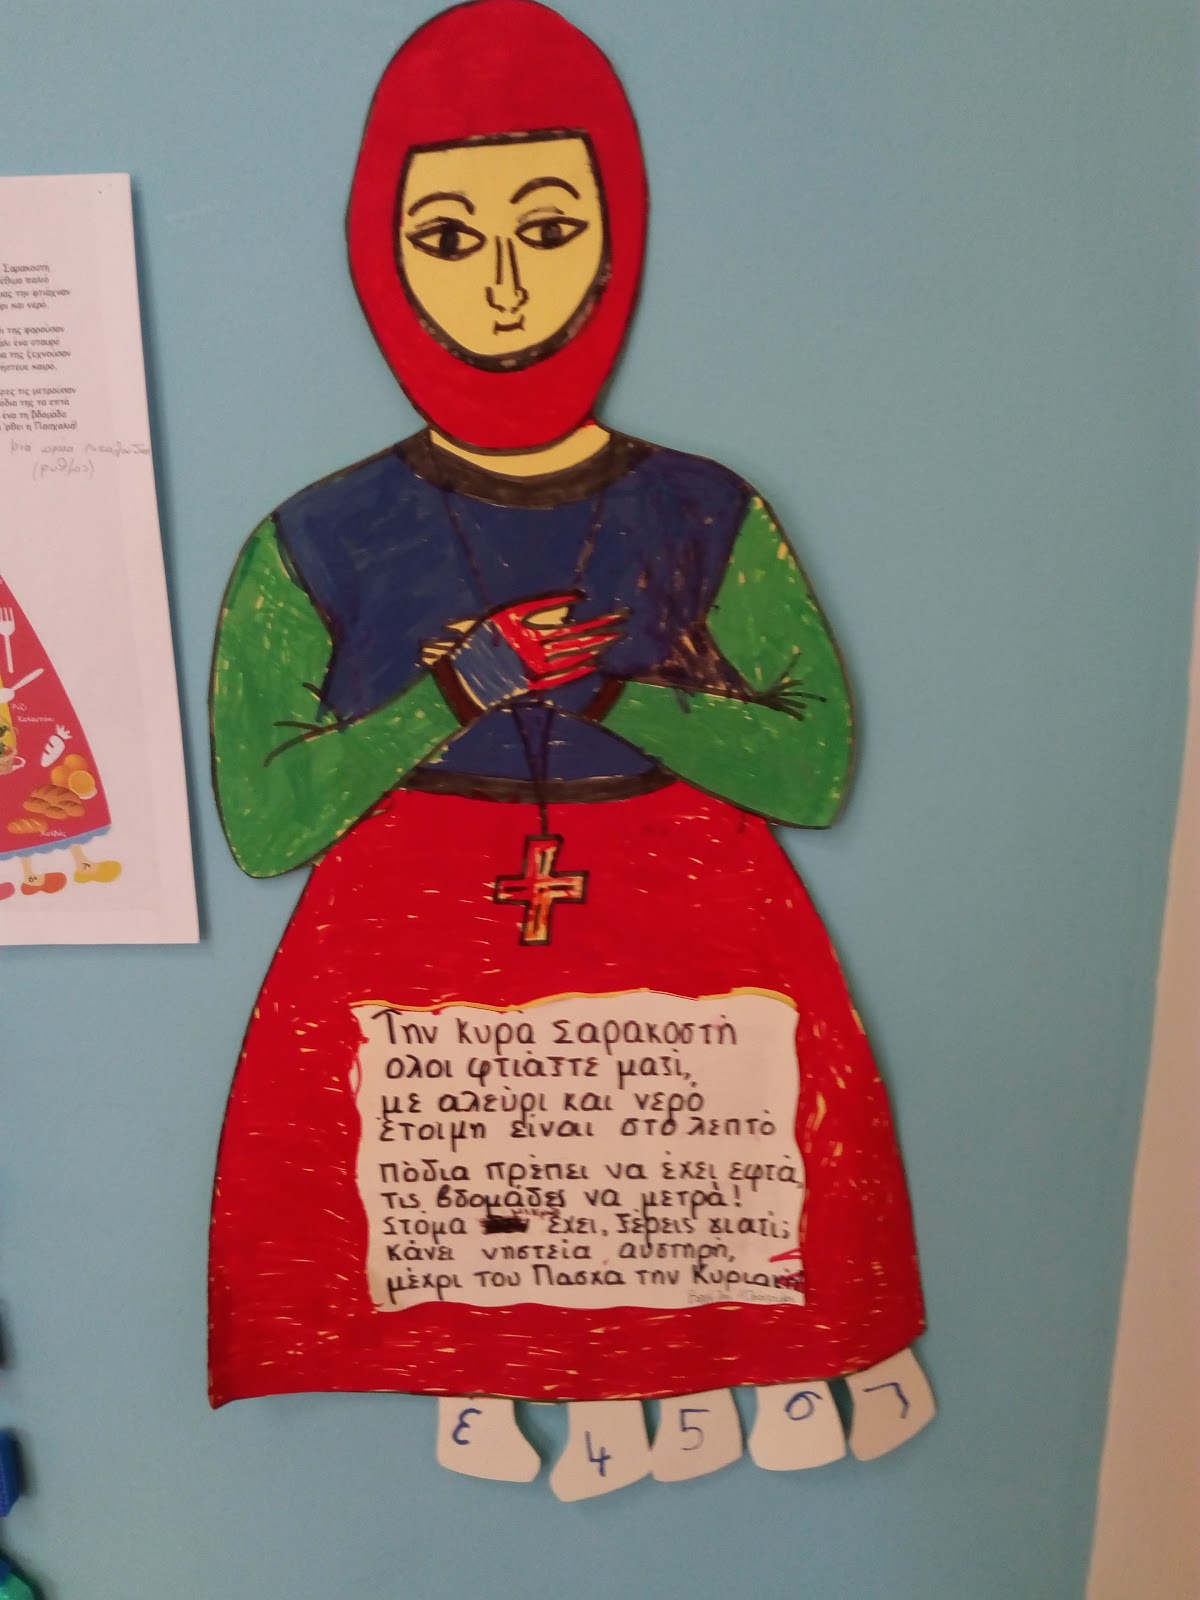 Σαρακοστή
έθιμο παλιό
μας την φτιάχναν
ρι και νερό.
της φορούσαν
ένα σταυρό
της ξεχνούσαν
νήστευε καιρό.
τις μετρούσαν
πόδια της τα επτά
ένα τη βδομάδα
'ρθει η Πασχαλιά!
(ρυθμός)
Ρύζι
Καλαμάρι
Χαλβάς
6η
7η
Την κυρά Σαρακοστή
όλοι φτιάξτε μαζί,
με αλεύρι και νερό
έτοιμη είναι στο λεπτό
Πόδια πρέπει να έχει εφτά,
τις βδομάδες να μετρά!
Στόμα έχει, ξέρεις γιατί;
κάνει νηστεία αυστηρή,
μέχρι του Πάσχα την Κυριακή
3
4
5
6
7